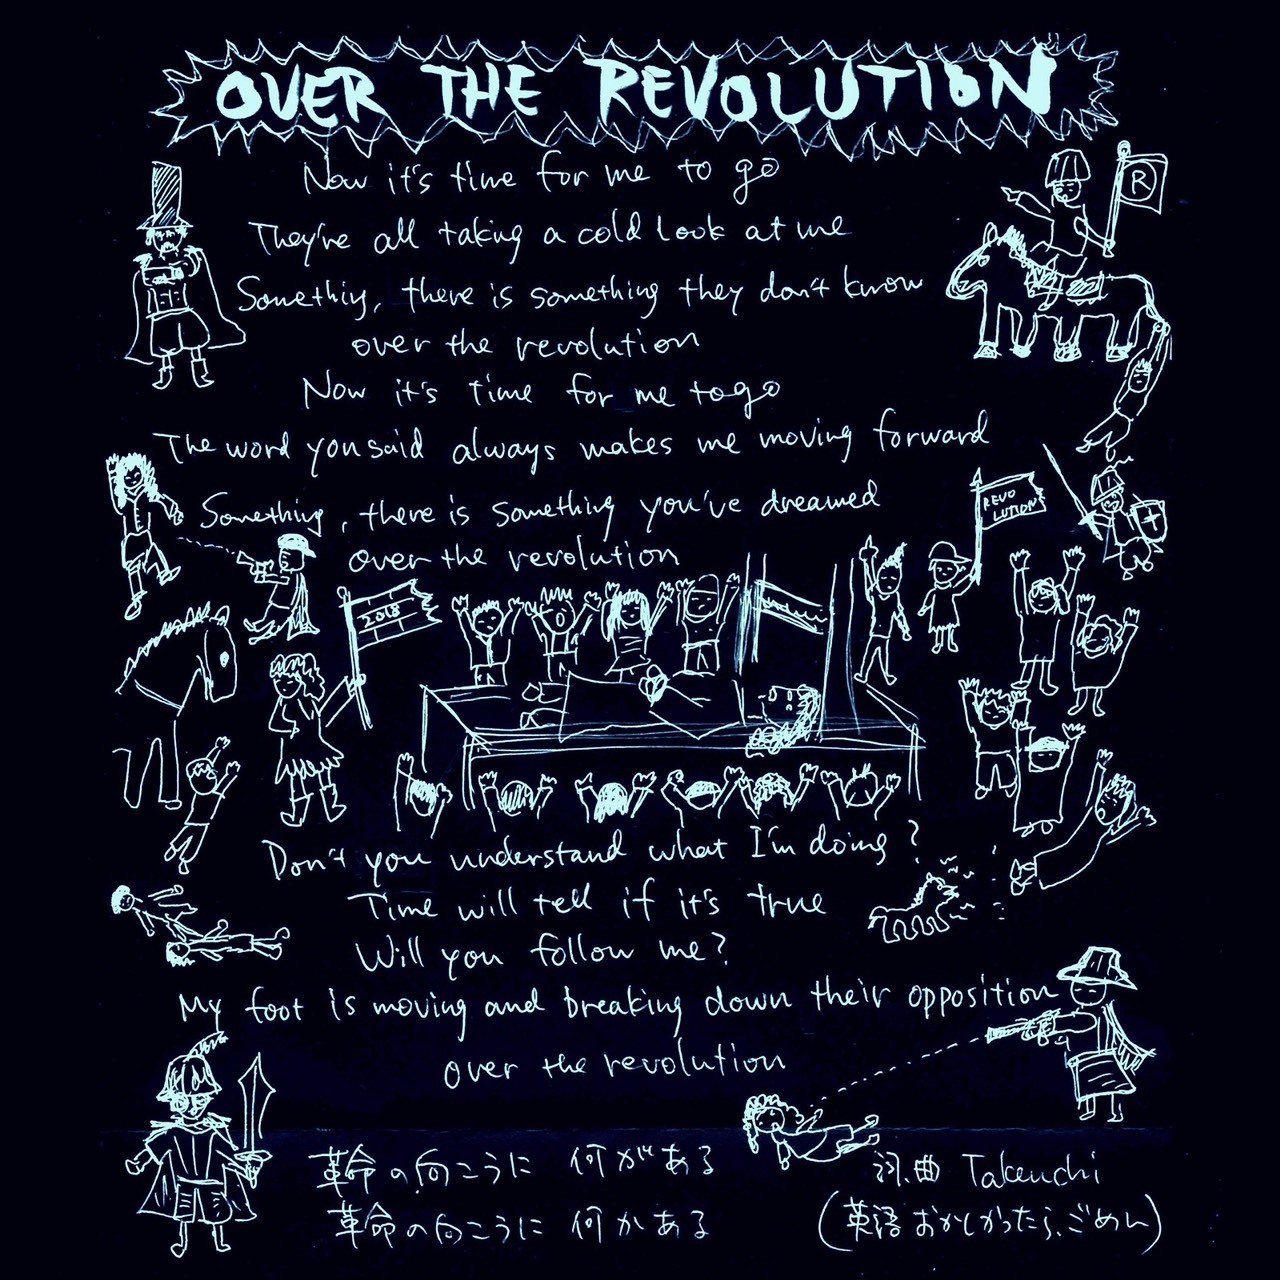 OVER THE REVOLUTION
Now it's time for me to go
They're all taking a cold look at me
Something, there is something they don't know
over the revolution
Now it's time for me to go
The word you said always makes me moving forward
Something, there is something you've dreamed
over the revolution
R
REVO
LUTION
2018
Don't you understand what I'm doing?
Time will tell if it's true
Will you follow me?
My foot is moving and breaking down their opposition
over the revolution
革命の向こうに 何がある
革命の向こうに 何かある
詞.曲 Takeuchi
(英語おかしかったら、ごめん)